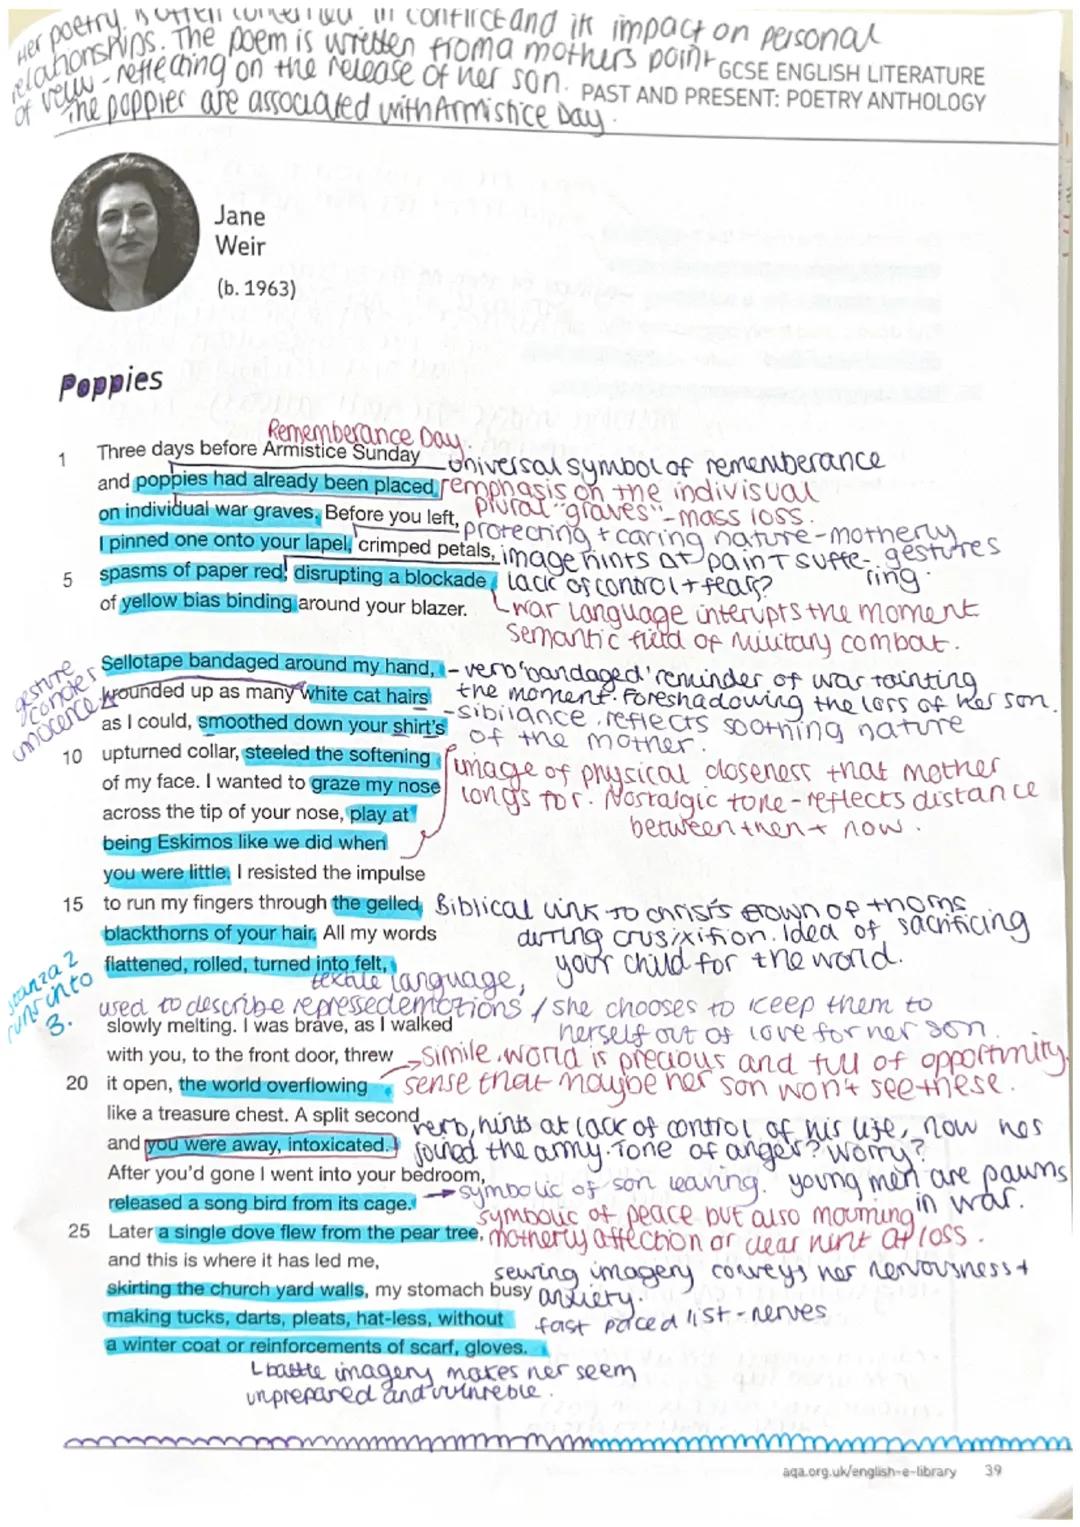 Her poetry is often concerned in conflict and it impact on personal
relationships. The poem is written from a mothers point
of veiw - reflecting on the release of her son.
GCSE ENGLISH LITERATURE
The poppies are associated with Armistice Day.
PAST AND PRESENT: POETRY ANTHOLOGY
Jane
Weir
(b. 1963)
Poppies
Rememberance Day.
1 Three days before Armistice Sunday universal symbol of rememberance
and poppies had already been placed emphasis on the indivisual
on individual war graves. Before you left, plural "graves" - mass loss.
protecting + caring nature - motherly
gestures
I pinned one onto your lapel, crimped petals, image hints at pain + suffe-
ring.
5 spasms of paper red, disrupting a blockade lack of control + fears?
of yellow bias binding around your blazer. war language interupts the moment
semantic field of military combat.
Sellotape bandaged around my hand, - verb 'bandaged' reminder of war tainting
gesture
innocence
I rounded up as many white cat hairs the moment. Foreshadowing the loss of her son.
as I could, smoothed down your shirt's - sibilance. reflects soothing nature
of the mother.
10 upturned collar, steeled the softening image of physical closeness that mother
of my face. I wanted to graze my nose longs for. Nostalgic tone - reflects distance
across the tip of your nose, play at between then + now.
being Eskimos like we did when
you were little. I resisted the impulse
15 to run my fingers through the gelled Biblical link to christs crown of thorns
blackthorns of your hair. All my words during crusixifion. Idea of sacrificing
flattened, rolled, turned into felt, your child for the world.
stanza 2
runs into
3.
textile language,
used to describe repressed emotions / she chooses to keep them to
slowly melting. I was brave, as I walked herself out of love for her son.
with you, to the front door, threw simile. world is precious and full of opportunity.
20 it open, the world overflowing sense that maybe her son won't see these.
like a treasure chest. A split second verb, hints at lack of control of his life, now hes
and you were away, intoxicated. joined the army. Tone of anger? worry?
After you'd gone I went into your bedroom,
released a song bird from its cage. symbolic of son leaving. young men are pawns
in war.
symbolic of peace but also mourning
25 Later a single dove flew from the pear tree, motherly affection or clear hint at loss.
and this is where it has led me, sewing imagery conveys her nervousness +
skirting the church yard walls, my stomach busy anxiety.
making tucks, darts, pleats, hat-less, without fast paced list - nerves
a winter coat or reinforcements of scarf, gloves.
battle imagery makes her seem
unprepared and vulnreble.
aqa.org.uk/english-e-library 39